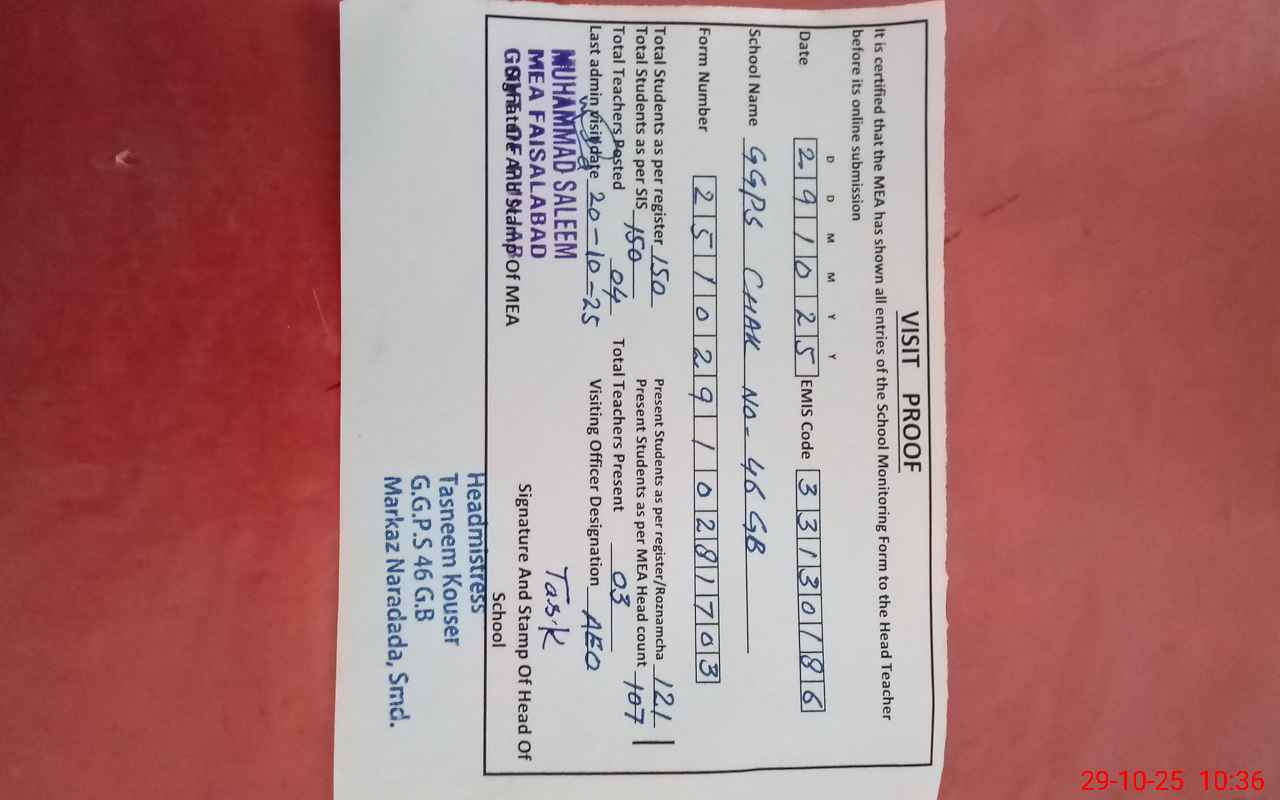 VISIT PROOF
It is certified that the MEA has shown all entries of the School Monitoring Form to the Head Teacher
before its online submission
D D M M Y Y
Date 2 9 1 0 2 5 EMIS Code 3 3 1 3 0 1 8 6
School Name GGPS CHAK No- 46 GB
Form Number 2 5 1 0 2 9 1 0 2 8 1 7 0 3
Total Students as per register 150 Present Students as per register/Roznamcha 121
Total Students as per SIS 150 Present Students as per MEA Head count 107
Total Teachers Posted 04 Total Teachers Present 03
Last admin visit date 20-10-25 Visiting Officer Designation AEO
MUHAMMAD SALEEM
MEA FAISALABAD
GOVT OF PUNJAB
Signature And Stamp Of MEA
Tas.K
Signature And Stamp Of Head Of
School
Headmistress
Tasneem Kouser
G.G.P.S 46 G.B
Markaz Naradada, Smd.
29-10-25 10:36